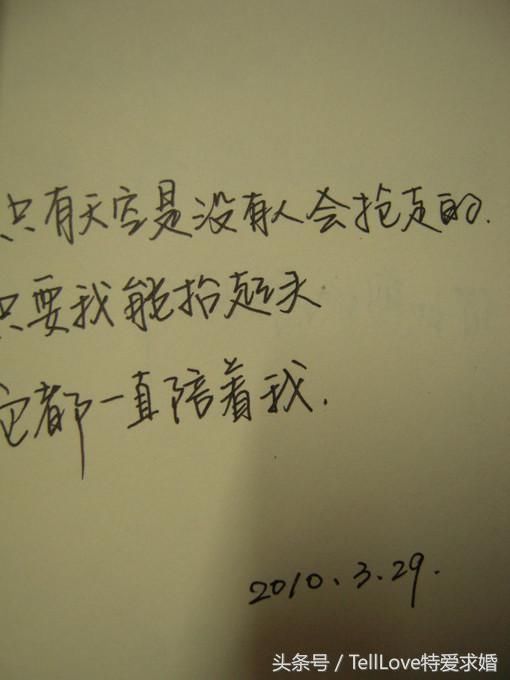 只有天空是没有人会抢走的.
只要我能抬起头
它都一直陪着我.
2010.3.29.
头条号 / TellLove特爱求婚